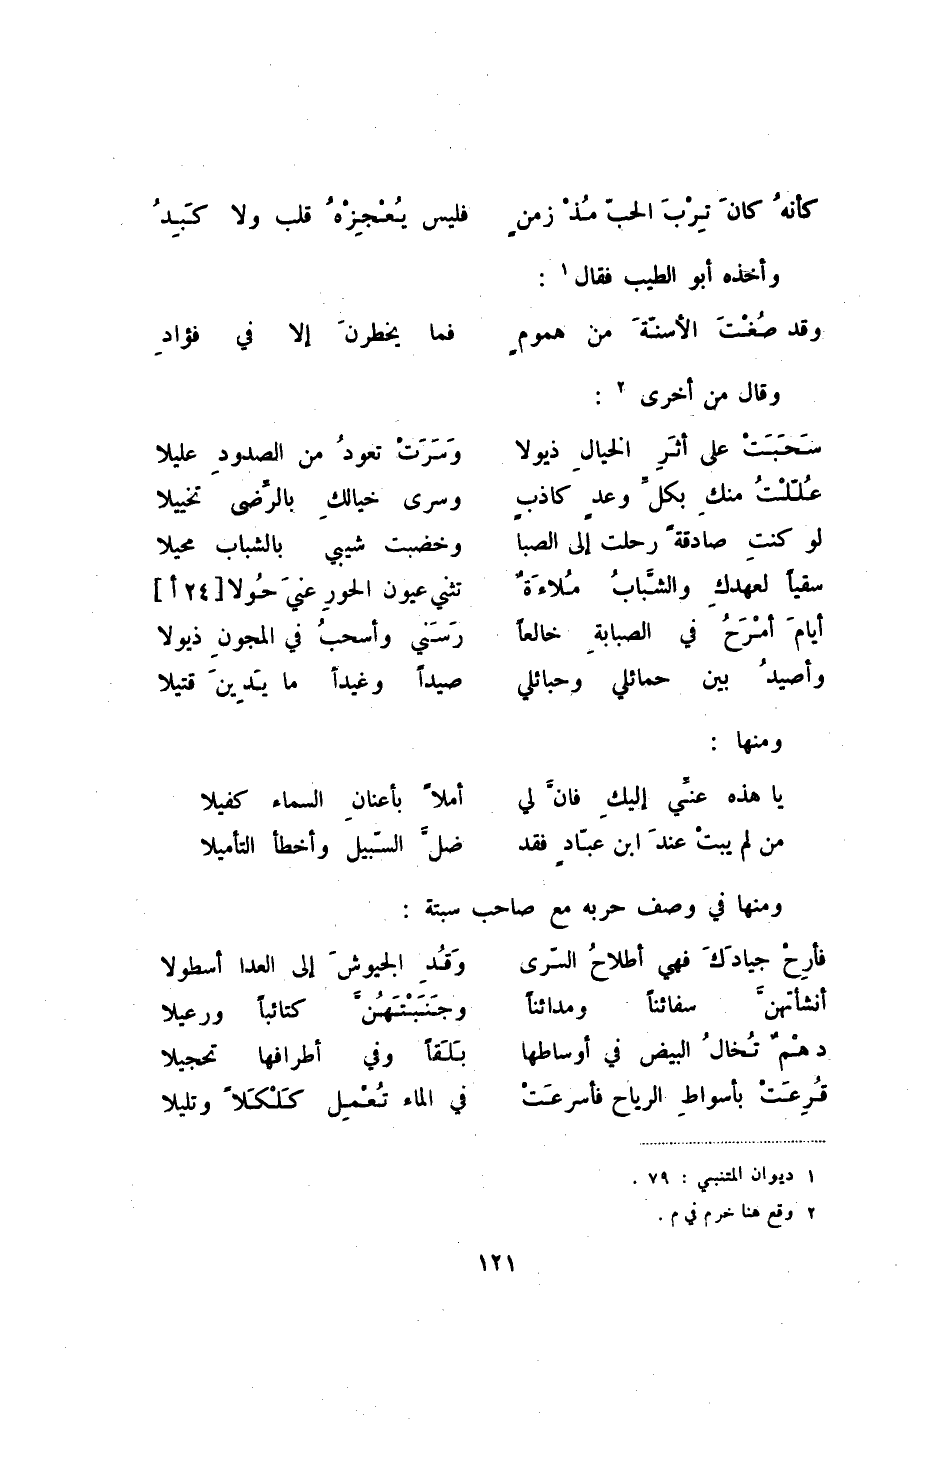 كأنهُ كانَ تِرْبَ الحبّ مُذْ زمنٍ فليس يُعْجِزْهُ قلب ولا كَبِدُ
وأخذه أبو الطيب فقال ١ :
وقد صُغْتَ الأسنّةَ من همومٍ فما يخطرنَ إلا في فؤادِ
وقال من أخرى ٢ :
سَحَبَتْ على أثَرِ الخيالِ ذيولا وَسَرَتْ تعودُ من الصدودِ عليلا
عُلّلْتُ منكِ بكلِّ وعدٍ كاذبٍ وسرى خيالكِ بالرِّضى تخييلا
لو كنتِ صادقةً رحلت إلى الصبا وخضبت شيبي بالشباب محيلا
سقياً لعهدكِ والشَّبابُ مُلاءَةٌ تثني عيون الحورِ عنيَ حُولا [٢٤ أ]
أيامَ أمْرَحُ في الصبابةِ خالعاً رَسَني وأسحبُ في المجونِ ذيولا
وأصيدُ بين حمائلي وحبائلي صيداً وغيداً ما يَدِينَ قتيلا
ومنها :
يا هذه عنّي إليكِ فانَّ لي أملاً بأعنانِ السماء كفيلا
من لم يبتْ عندَ ابن عبّادٍ فقد ضلَّ السّبيل وأخطأ التأميلا
ومنها في وصف حربه مع صاحب سبتة :
فأرِحْ جيادَكَ فهي أطلاحُ السّرى وَقُدِ الجيوشَ إلى العدا أسطولا
أنشأتهنَّ سفائناً ومدائناً وجَنَبْتَهُنَّ كتائباً ورعيلا
دهْمٌ تُخالُ البيض في أوساطها بَلَقاً وفي أطرافها تحجيلا
قُرِعَتْ بأسواطِ الرياح فأسرعَتْ في الماء تُعْمِل كَلْكَلاً وتليلا
١ ديوان المتنبي : ٧٩ .
٢ وقع هنا خرم في م .
١٢١